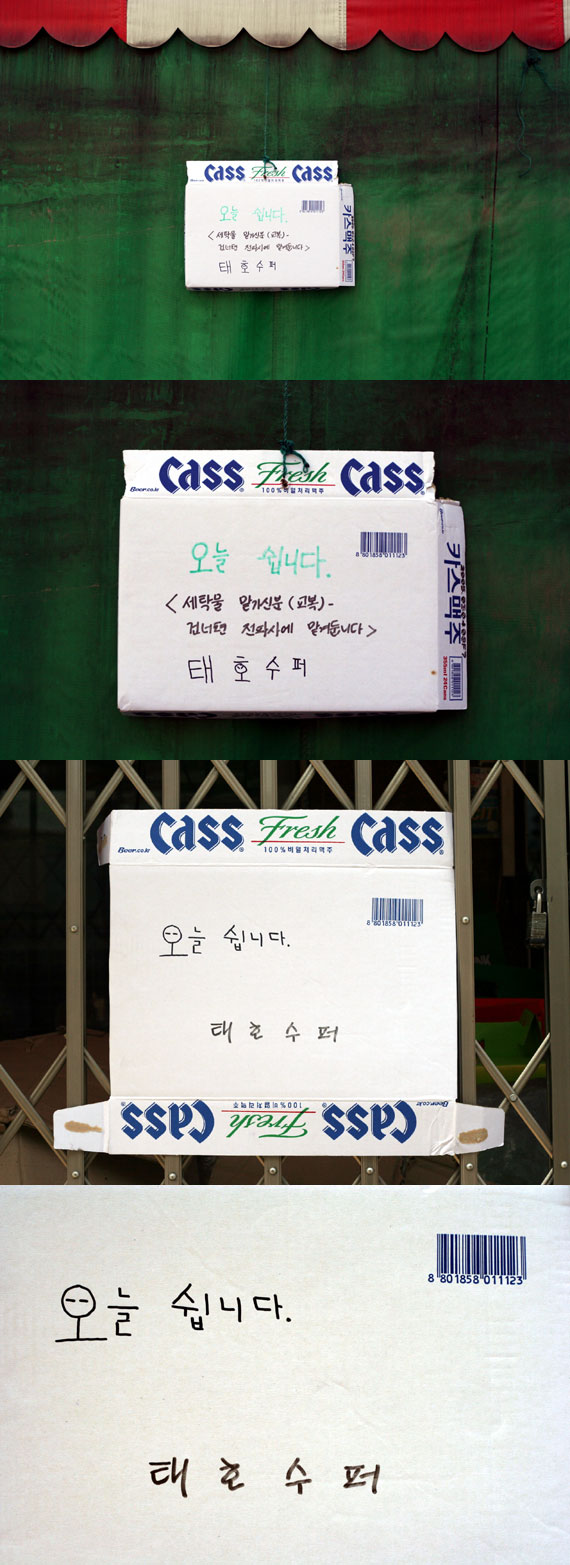 Cass Fresh Cass
100%비열처리맥주
오늘 쉽니다.
<세탁물 맡기신분(교복)-
건너편 전파사에 맡겨둡니다>
태호수퍼
카스맥주
Beer.co.kr
Cass Fresh Cass
100%비열처리맥주
오늘 쉽니다.
8 801858 011123
<세탁물 맡기신분(교복)-
건너편 전파사에 맡겨둡니다>
태호수퍼
카스맥주
355ml 24Cans
Cass Fresh Cass
Beer.co.kr
100%비열처리맥주
8 801858 011123
오늘 쉽니다.
태호수퍼
Cass Fresh Cass
100%비열처리맥주
Beer.co.kr
8 801858 011123
오늘 쉽니다.
태호수퍼